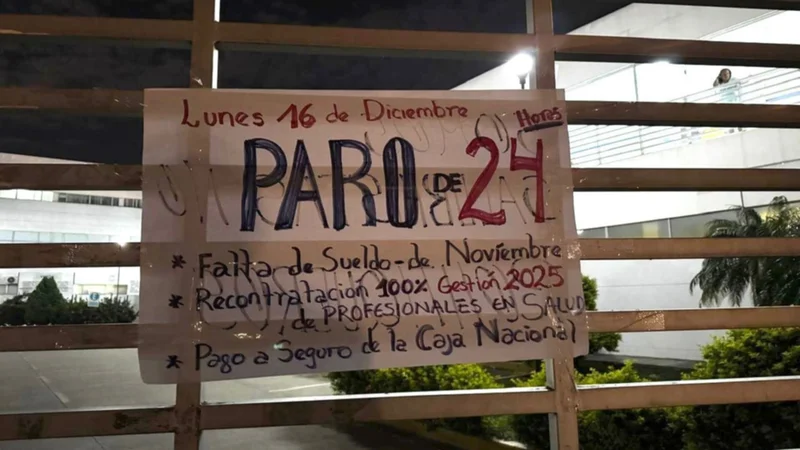 Lunes 16 de Diciembre
PARO DE 24 Horas
* Falta de Sueldo de Noviembre
* Recontratación 100% Gestión 2025
de PROFESIONALES EN SALUD
* Pago a Seguro de la Caja Nacional